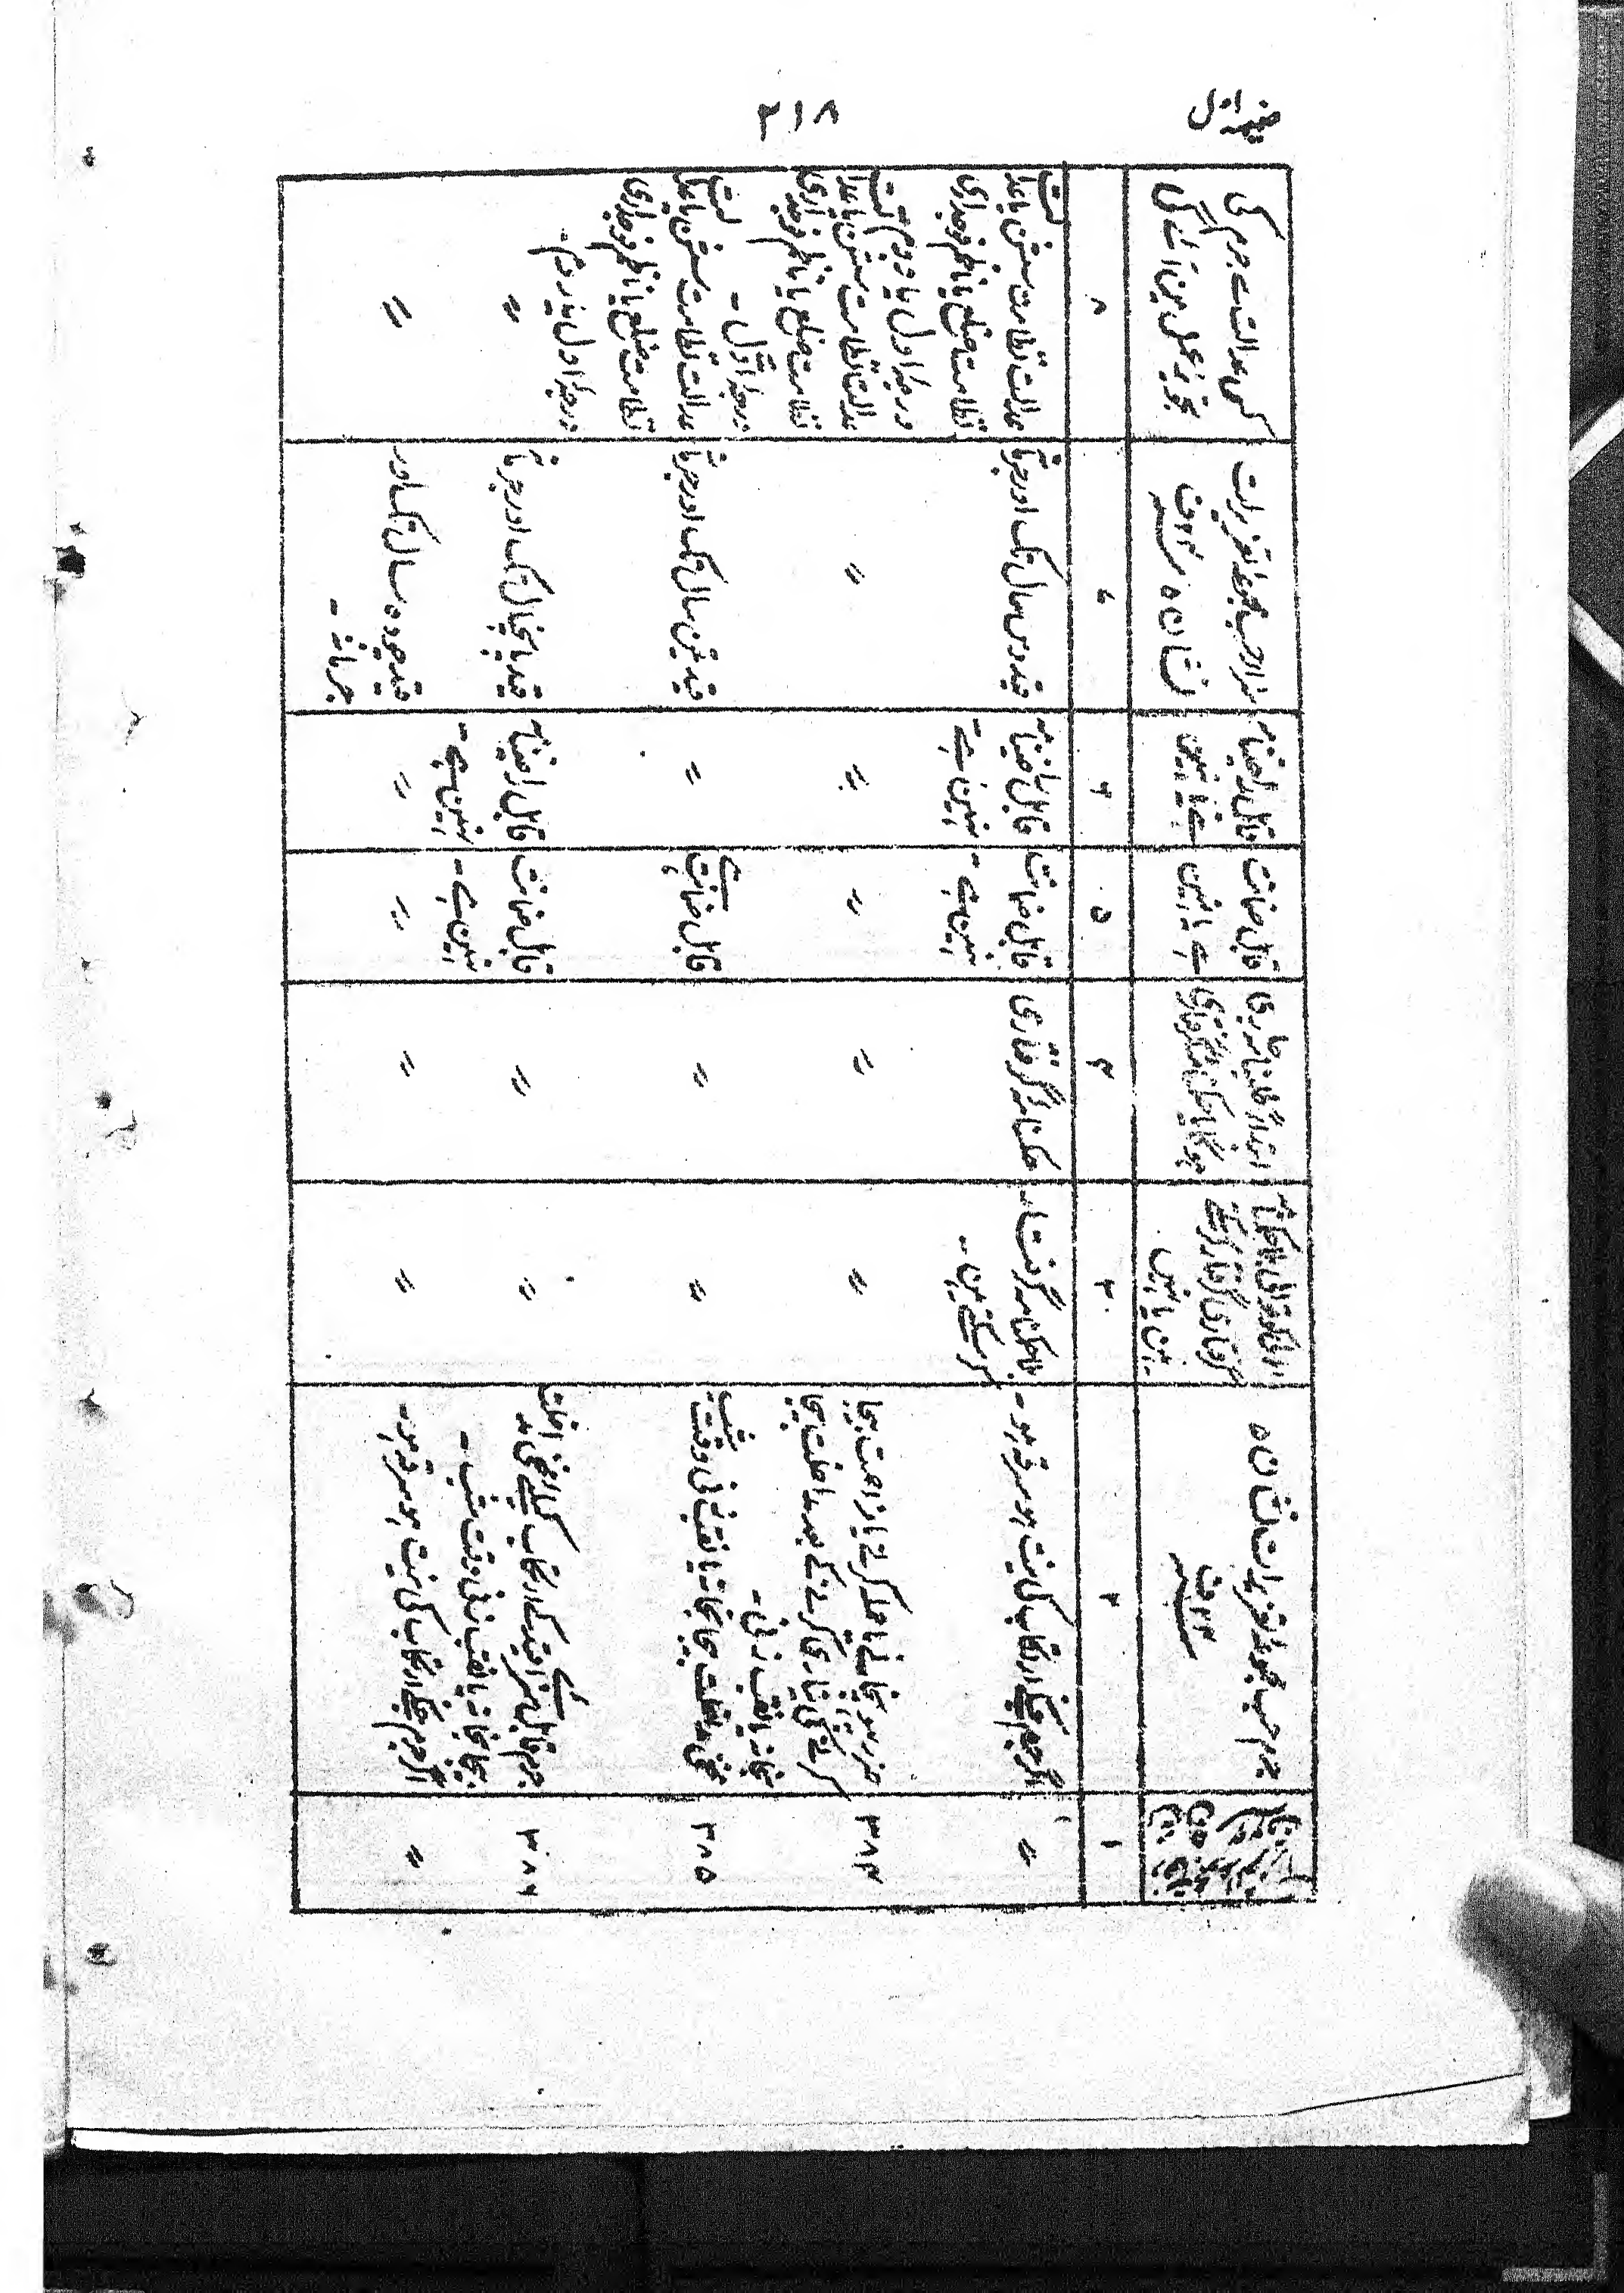 ضمیمہ اول
۳۱۸
جرم حسب مجموعہ تعزیرات نشان ہ
سنہ ۱۳ ف
اہالی کوتوالی بلا حکمنامہ
گرفتاری گرفتار کر سکتے
ہین یا نہین
ابتداءً طلبنامہ جاری
ہوگا یا حکمنامہ گرفتاری
قابل ضمانت
ہے یا نہین
قابل راضینامہ
ہے یا نہین
سزا حسب مجموعہ تعزیرات
نشان ہ سنہ ۱۳ ف
کس عدالت سے جرم کی
تجویز عمل مین آئے گی
۱
۲
۳
۴
۵
۶
۷
۸
〃
اگر جرم جسکے ارتکاب کی نیت ہو سرقہ ہو ۔
بلا حکمنامہ گرفتار
کر سکتے ہین ۔
حکمنامہ گرفتاری
قابل ضمانت
نہین ہے ۔
قابل راضینامہ
نہین ہے ۔
قید دس سال تک اور جرمانہ
عدالت نظامت سشن یا عدالت
نظامت ضلع یا ناظم فوجداری
درجہ اول یا دوم
۳۸۴
ضرر پہونچانے یا حملہ کرنے یا مزاحمت بیجا
کرنے کی تیاری کرنے کے بعد مداخلت بیجا
بخانہ یا نقب زنی ۔
〃
〃
〃
〃
〃
عدالت نظامت سشن یا عدالت
نظامت ضلع یا ناظم فوجداری
درجہ اول ۔
۳۸۵
مخفی مداخلت بیجا بخانہ یا نقب زنی وقت شب
〃
〃
قابل ضمانت ہے
〃
قید تین سال تک اور جرمانہ
عدالت نظامت سشن یا عدالت
نظامت ضلع یا ناظم فوجداری
درجہ اول یا دوم ۔
۳۸۶
جرم قابل سزائے قید کے ارتکاب کیلئے مخفی مداخلت
بیجا بخانہ یا نقب زنی وقت شب ۔
〃
〃
قابل ضمانت
نہین ہے ۔
قابل راضینامہ
نہین ہے ۔
قید پانچسال تک اور جرمانہ
〃
〃
اگر جرم جسکے ارتکاب کی نیت ہو سرقہ ہو ۔
〃
〃
〃
〃
قید چودہ سال تک اور
جرمانہ ۔
〃